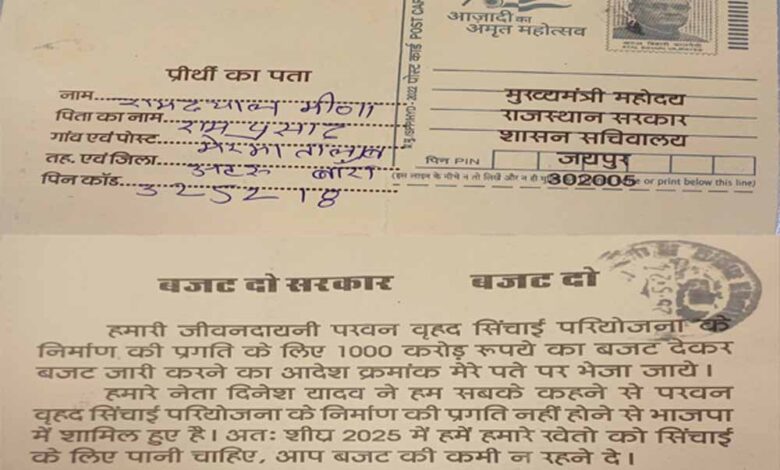 आज़ादी का
अमृत महोत्सव
POST CARD
2022 पोस्ट कार्ड
प्रीर्थी का पता
नाम रामदयाल मीणा
पिता का नाम राम प्रसाद
गांव एवं पोस्ट
तह. एवं जिला अटरू बारां
पिन कॉड 325218
मुख्यमंत्री महोदय
राजस्थान सरकार
शासन सचिवालय
पिन PIN जयपुर
(इस लाइन के नीचे न तो लिखें और न ही 302005 or print below this line)
बजट दो सरकार बजट दो
हमारी जीवनदायनी परवन वृहद सिंचाई परियोजना के
निर्माण की प्रगति के लिए 1000 करोड़ रूपये का बजट देकर
बजट जारी करने का आदेश क्रमांक मेरे पते पर भेजा जाये।
हमारे नेता दिनेश यादव ने हम सबके कहने से परवन
वृहद सिंचाई परियोजना के निर्माण की प्रगति नहीं होने से भाजपा
में शामिल हुए है। अतः शीघ्र 2025 में हमें हमारे खेतो को सिंचाई
के लिए पानी चाहिए, आप बजट की कमी न रहने दे।